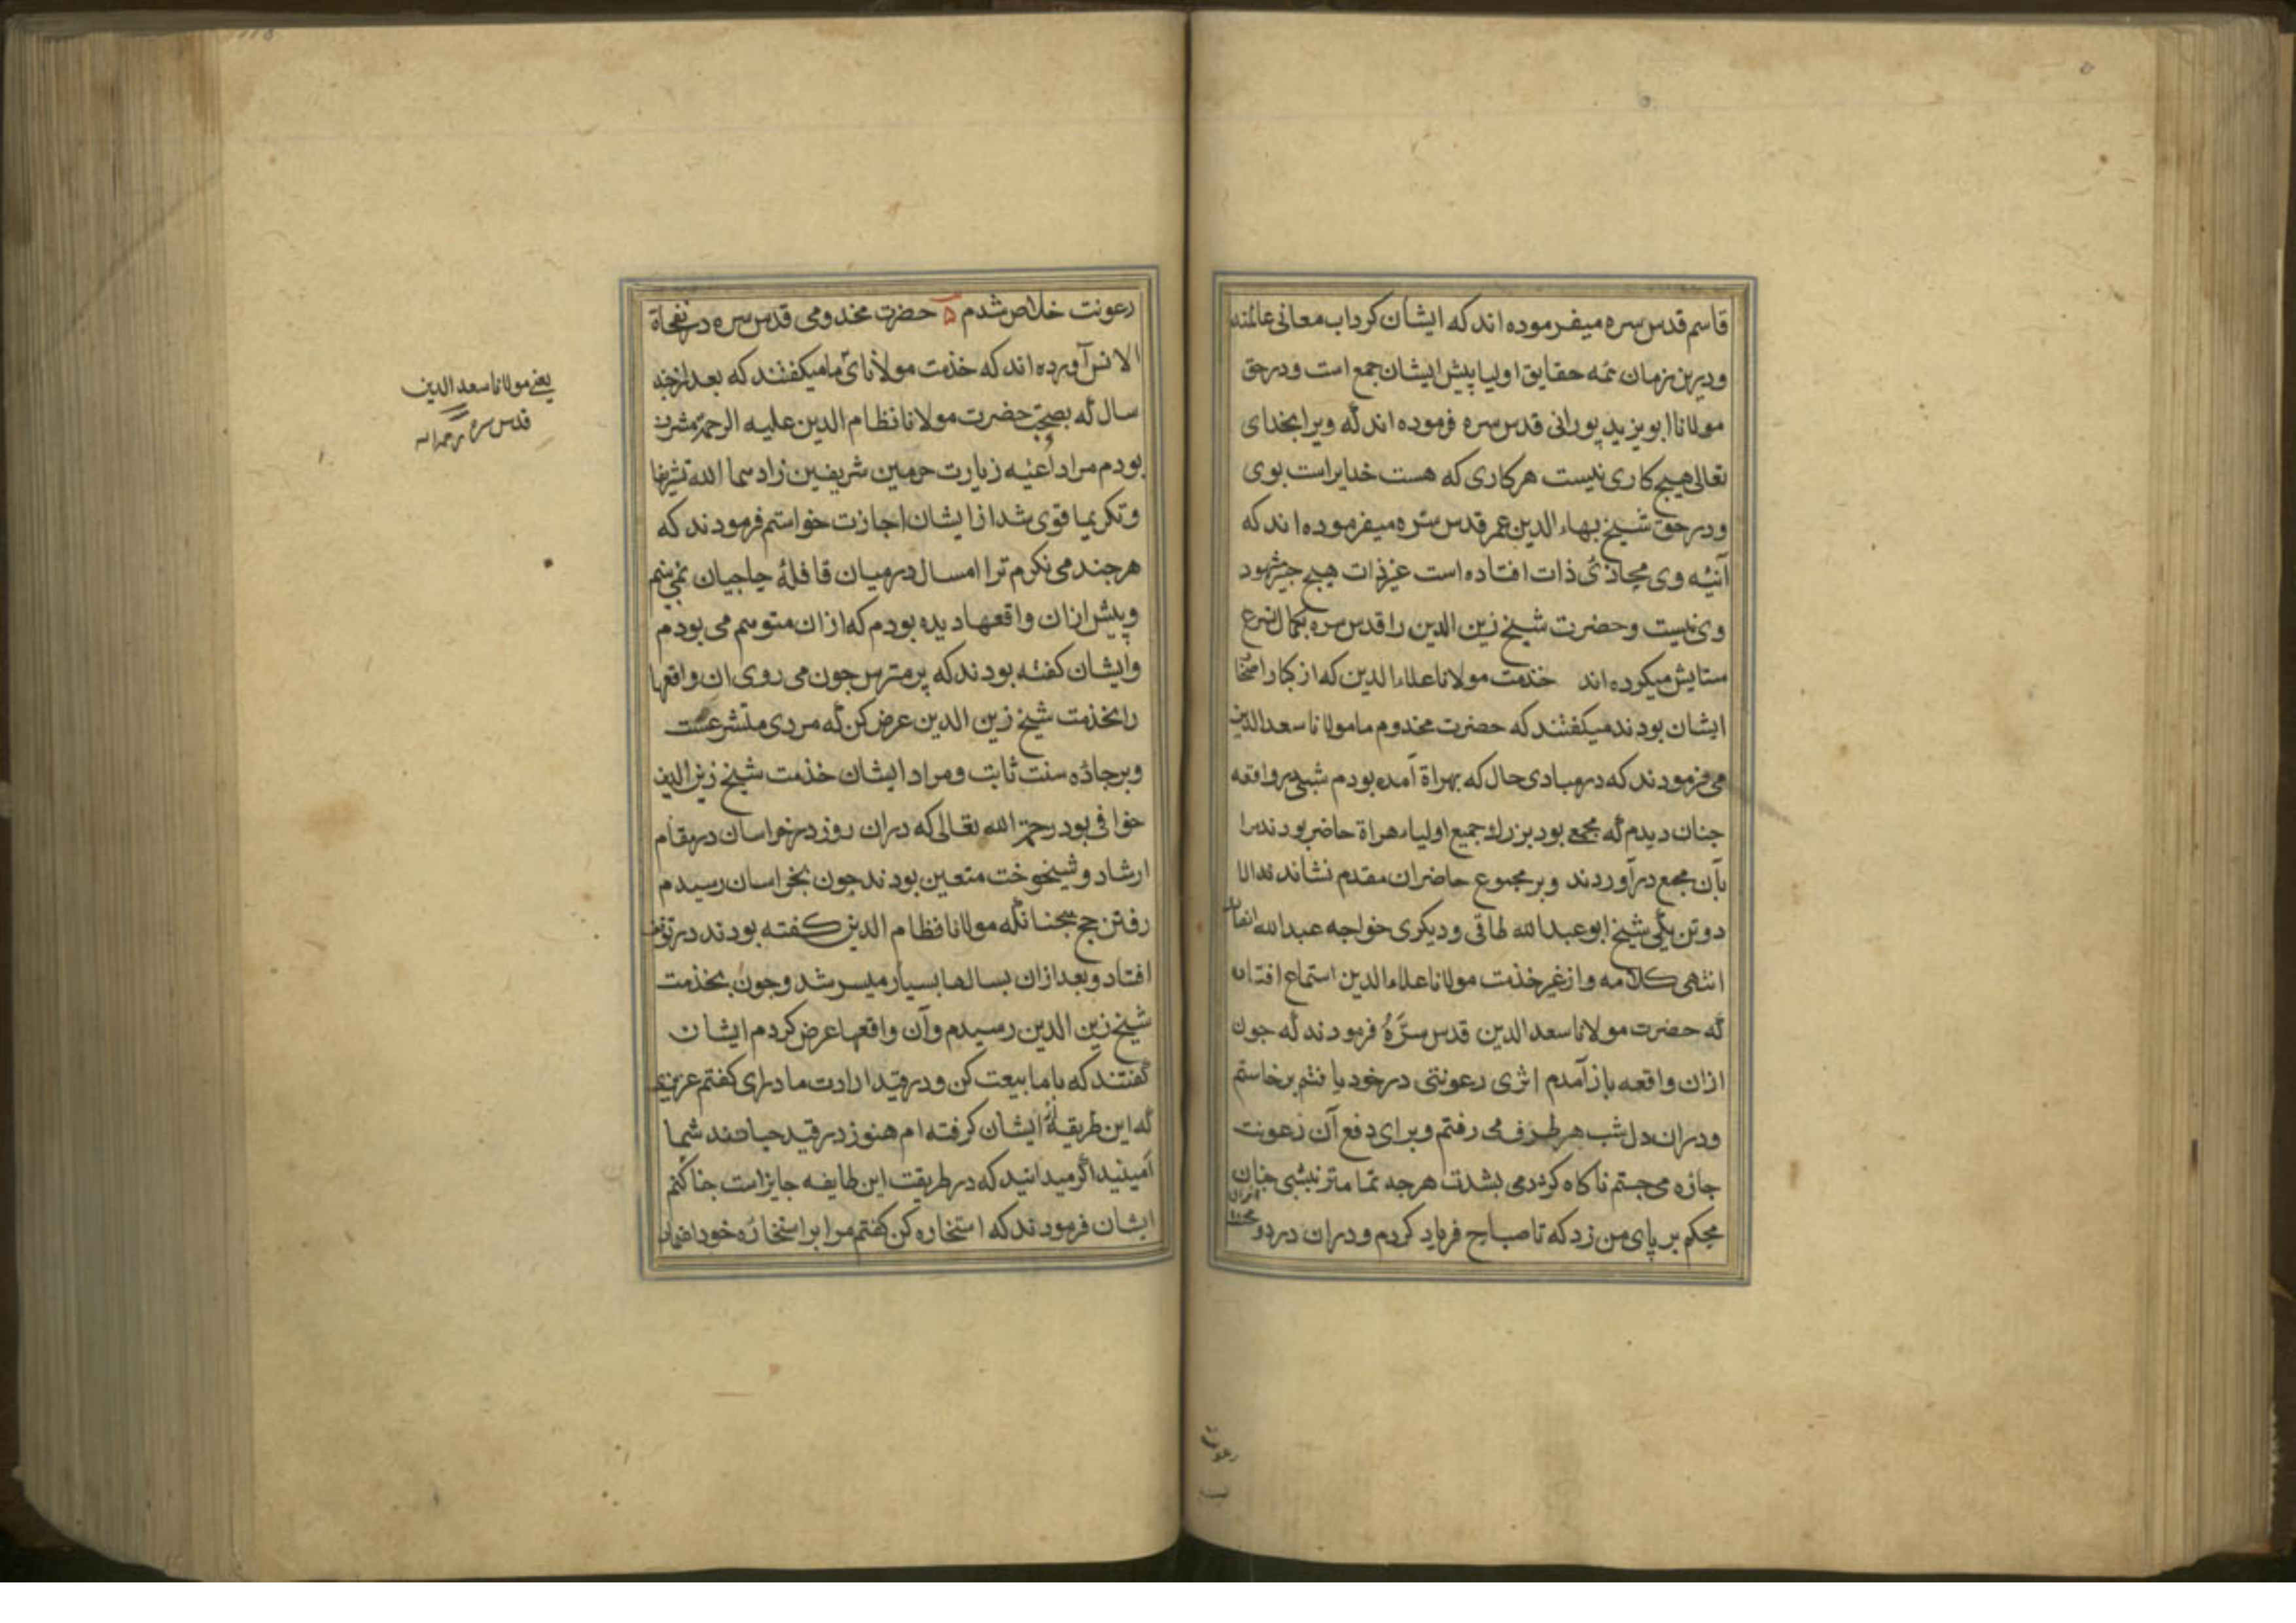 قاسم قدس سره میفرموده اند که ایشان کرداب معانی عالمند
ودرین زمان تمه حقایق اولیا پیش ایشان جمع است ودرحق
مولانا ابو یزید پورانی قدس سره فرموده اند که ویرا بخدای
تعالی هیچ کاری نیست هرکاری که هست خدایراست بوی
ودرحق شیخ بهاء الدین عمر قدس سره میفرموده اند که
آئینه وی محاذی ذات افتاده است غیر ذات هیچ مشهود
وی نیست وحضرت شیخ زین الدین را قدس سره بکمال شرع
ستایش میکرده اند خدمت مولانا علاء الدین که از کبار اصحاب
ایشان بودند میکفتند که حضرت مخدوم ما مولانا سعد الدین
می فرمودند که در مبادی حال که بهراة آمده بودم شبی در واقعه
جنان دیدم که مجمعی بود بزرک و جمیع اولیاء هراة حاضر بودند مرا
بآن مجمع درآوردند وبر مجموع حاضران مقدم نشاندند الا
دو تن یکی شیخ ابو عبد الله طاقی ودیکری خواجه عبد الله انصاری
انتهی کلامه واز غیر خدمت مولانا علاء الدین استماع افتاده
که حضرت مولانا سعد الدین قدس سره فرمودند که جون
ازان واقعه باز آمدم اثری رعونتی در خود یافتم برخاستم
ودران دل شب هر طرف می رفتم وبرای دفع آن رعونت
جاره می جستم ناکاه کژدمی بشدت هرجه تمامتر نیشی جنان
محکم بر پای من زد که تا صباح فریاد کردم ودران درد و محنت ازان
رعونت
رعونت خلاص شدم حضرت مخدومی قدس سره در نفحاة
الانس آورده اند که خدمت مولانای ما میکفتند که بعد از جند
سال که بصحبت حضرت مولانا نظام الدین علیه الرحمة مشرف
بودم مرا داعیه زیارت حرمین شریفین زادهما الله تشریفا
وتکریما قوی شد از ایشان اجازت خواستم فرمودند که
هرجند می نکرم ترا امسال درمیان قافله حاجیان نمی بینم
وپیش ازان واقعها دیده بودم که ازان متوهم می بودم
وایشان کفته بودند که مترس جون می روی ان واقعها
را بخدمت شیخ زین الدین عرض کن که مردی متشرعست
وبر جاده سنت ثابت ومراد ایشان خدمت شیخ زین الدین
خوافی بود رحمة الله تعالی که دران روز در خراسان در مقام
ارشاد و شیخوخت متعین بودند جون بخراسان رسیدم
رفتن حج همجنانکه مولانا نظام الدین کفته بودند در توقف
افتاد وبعد ازان بسالها بسیار میسر شد وجون بخدمت
شیخ زین الدین رسیدم وآن واقعها عرض کردم ایشان
کفتند که با ما بیعت کن ودر قید ارادت ما درای کفتم عزیزی
که این طریقه از ایشان کرفته ام هنوز در قید حیاتند شما
امینید اکر میدانید که در طریقت این طایفه جایز است جنان کنم
ایشان فرمودند که استخاره کن کفتم مرا بر استخاره خود اعتماد
یعنی مولانا سعد الدین
قدس سره